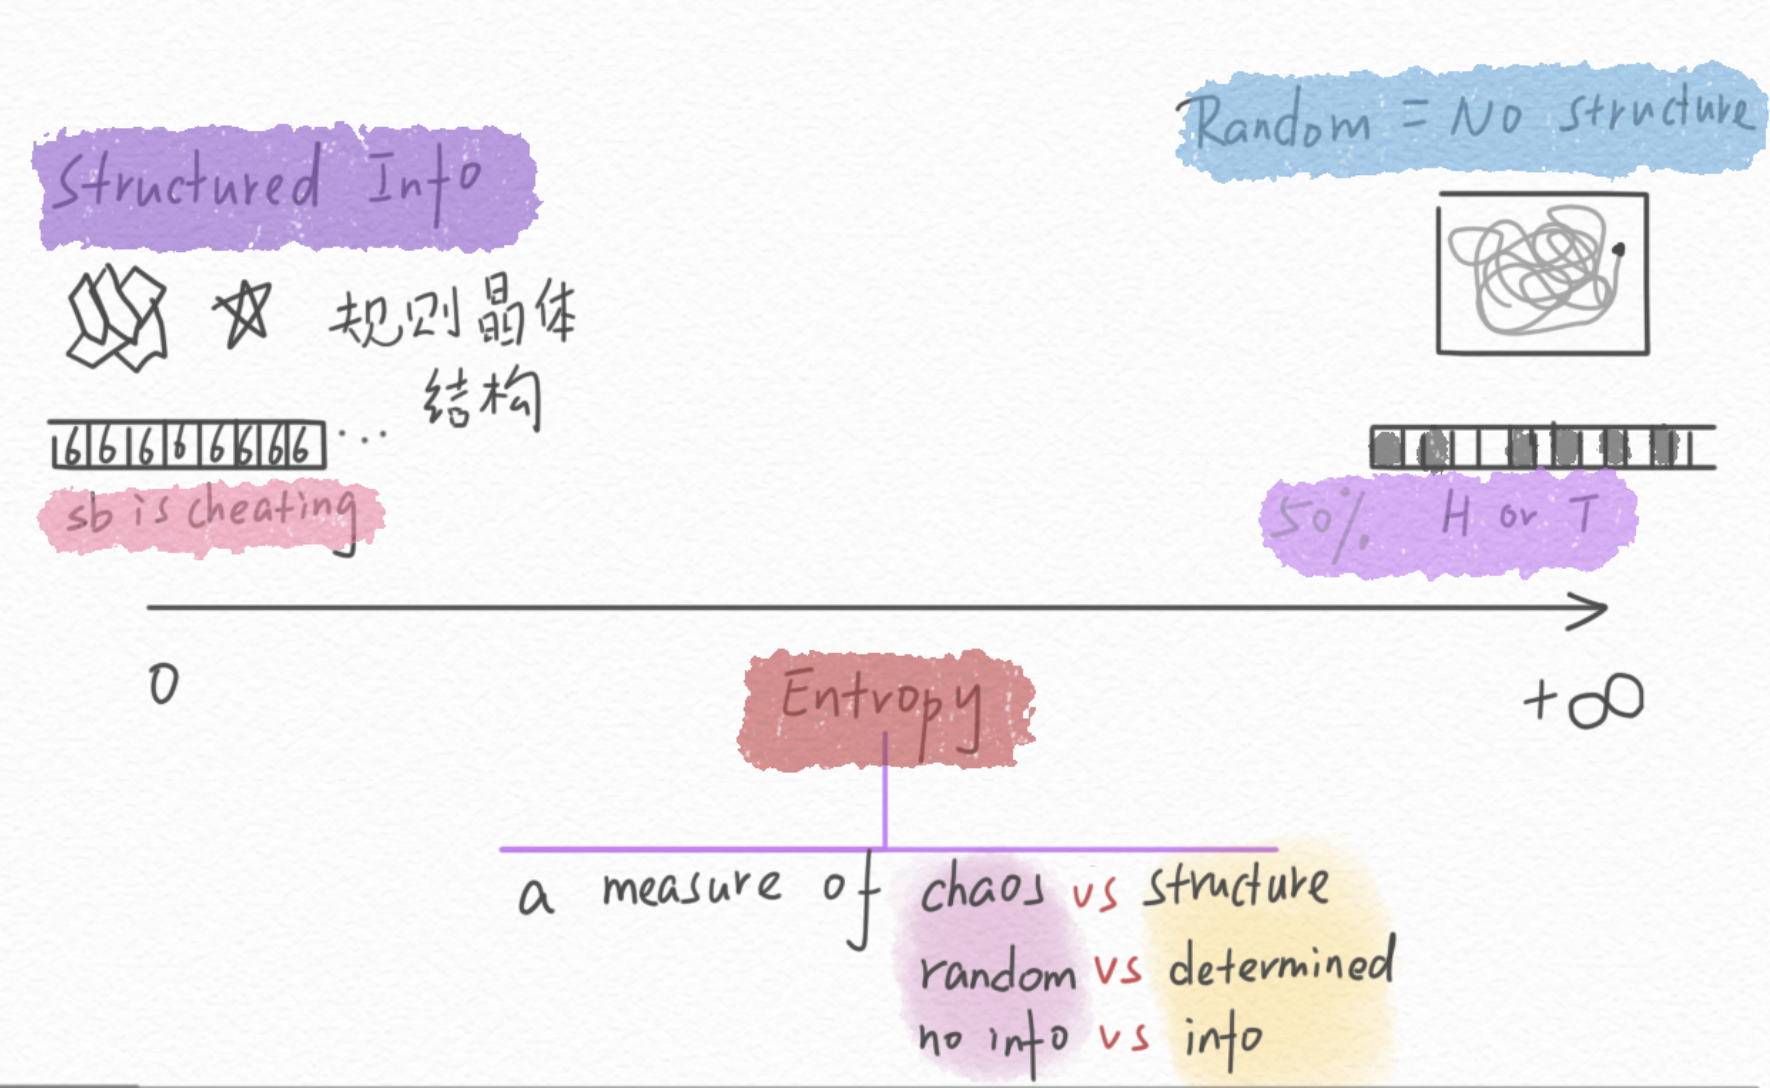 Random = No structure
Structured Info
规则晶体
结构
6 6 6 6 6 6 6 6 ...
sb is cheating
50% H or T
0
+∞
Entropy
a measure of chaos vs structure
random vs determined
no info vs info